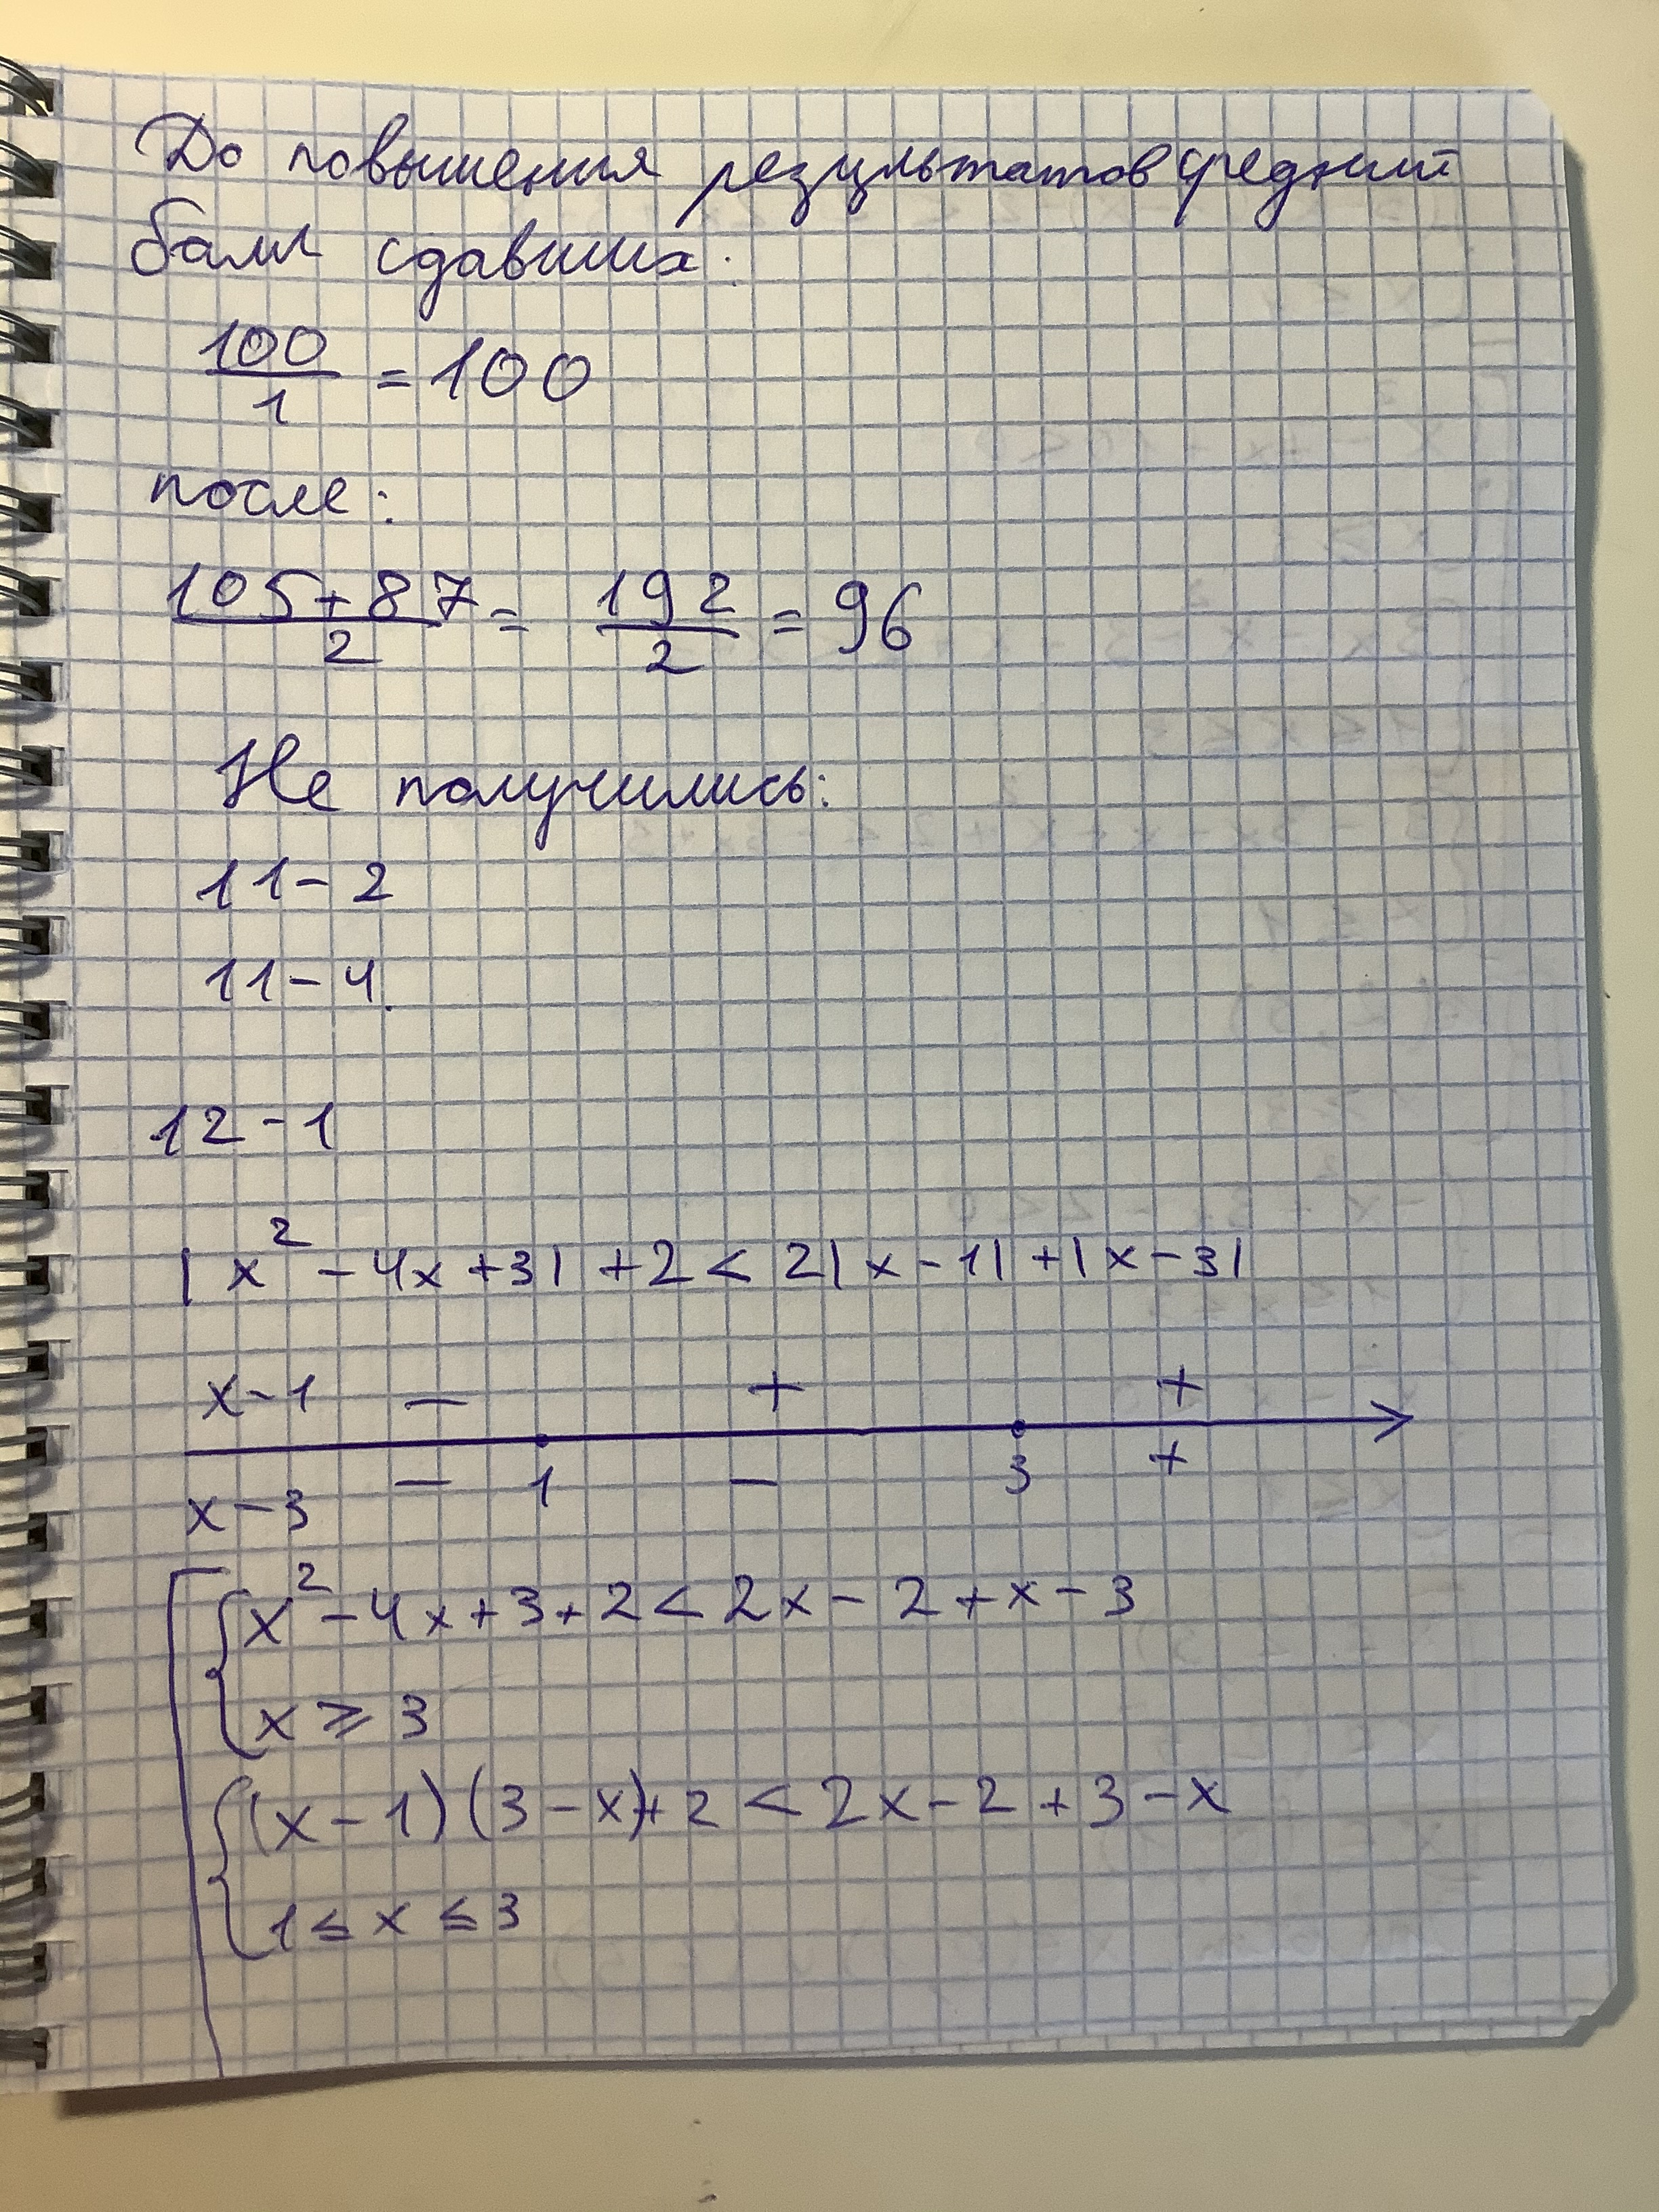 До повышения результатов средний
балл сдавших:
100/1 = 100
после:
(105+87)/2 = 192/2 = 96
Не получились:
11-2
11-4.
12-1
|x² - 4x + 3| + 2 < 2|x - 1| + |x - 3|
x-1 − + +
1 3
x-3 − − +
x² - 4x + 3 + 2 < 2x - 2 + x - 3
x ⩾ 3
(x - 1)(3 - x) + 2 < 2x - 2 + 3 - x
1 ≤ x ≤ 3